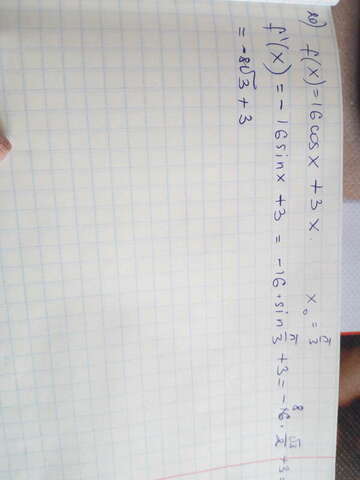 20) f(x) = 16cosx + 3x. x₀ = π/3
f'(x) = -16sinx + 3 = -16·sin π/3 + 3 = -16⁸· √3/2 + 3 =
= -8√3 + 3